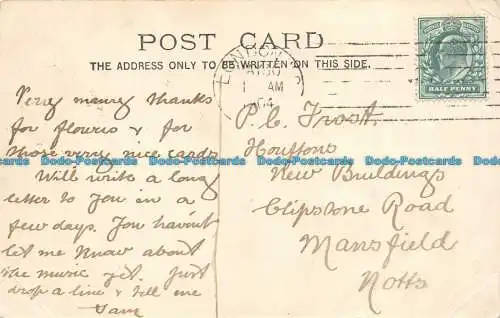 POST CARD
THE ADDRESS ONLY TO BE WRITTEN ON THIS SIDE.
LONDON
AM
04
HALF PENNY
Very many thanks
for flowers & for
those very nice cards
Will write a long
letter to you in a
few days. You havint
let me know about
the music yet. Just
drop a line & tell me
P.C. Frost.
New Buildings
Clipstone Road
Mansfield
Notts
Dodo-Postcards Dodo-Postcards Dodo-Postcards Dodo-Postcards Dodo-Postcards